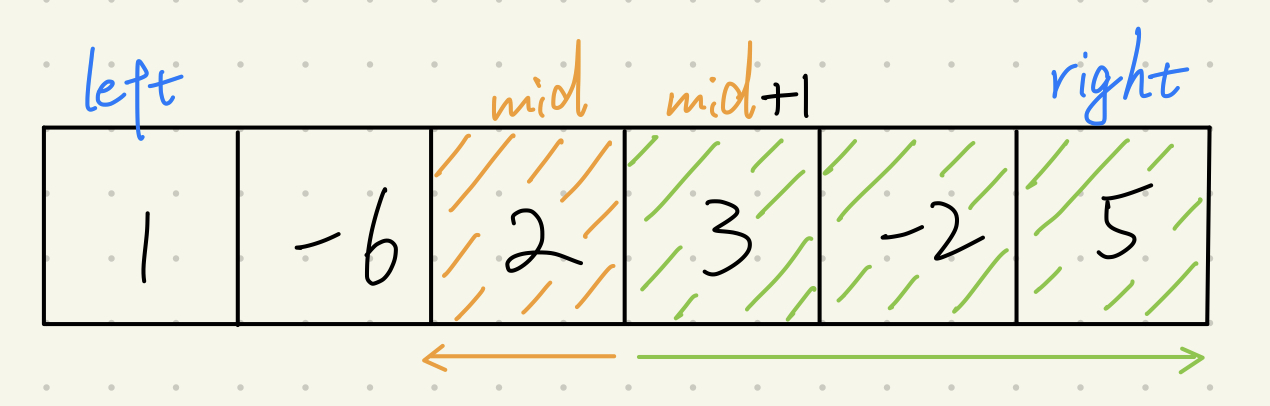 left mid mid+1 right
1 -6 2 3 -2 5